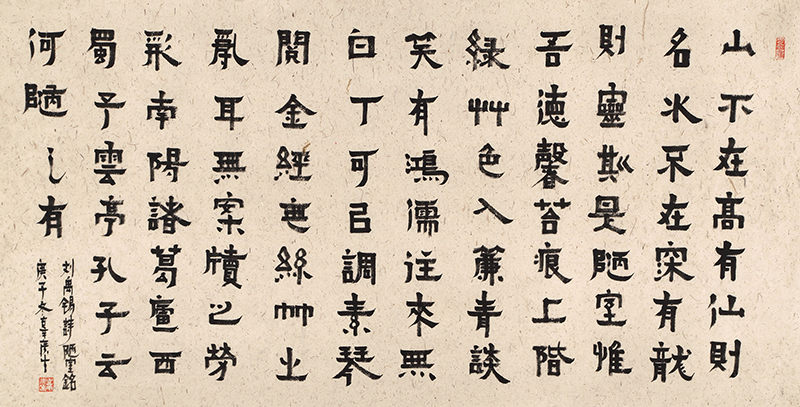 山不在高有仙則
名水不在深有龍
則靈斯是陋室惟
吾德馨苔痕上階
綠艸色入簾青談
笑有鴻儒往來無
白丁可㠯調素琴
閱金經無絲竹之
亂耳無案牘之勞
形南陽諸葛廬西
蜀子雲亭孔子云
何陋之有
刘禹錫詩陋室銘
庚子冬